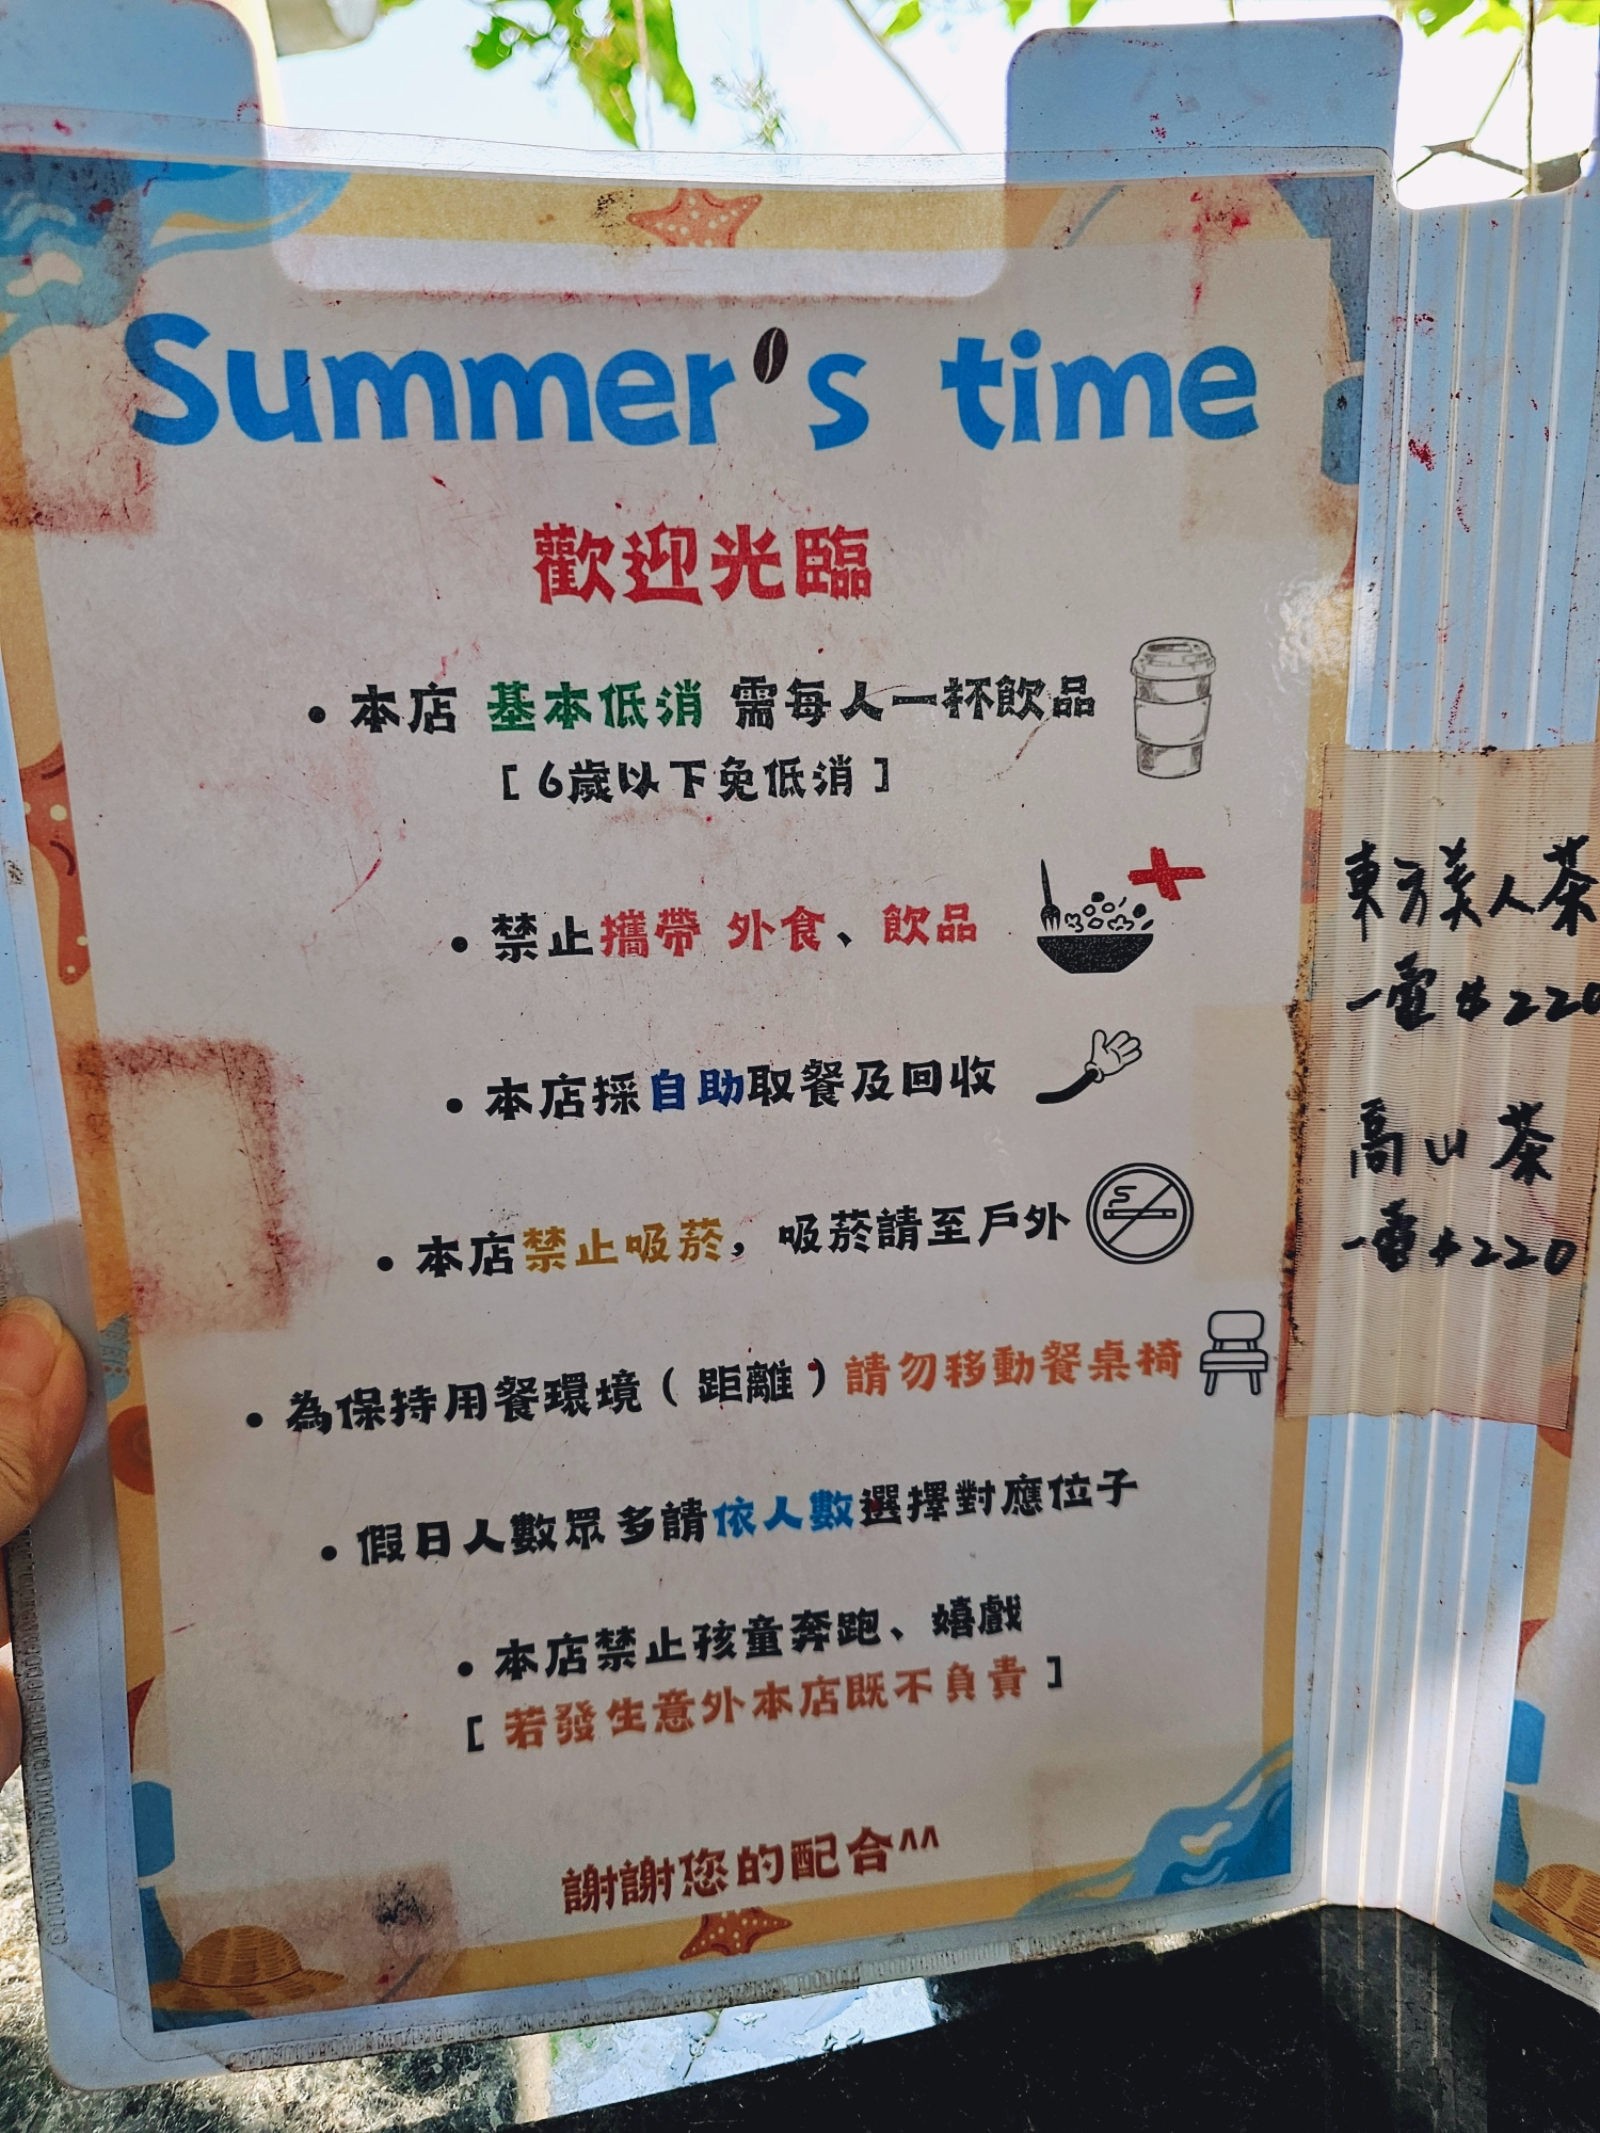 Summer's time
歡迎光臨
• 本店 基本低消 需每人一杯飲品
[ 6歲以下免低消 ]
• 禁止攜帶 外食、飲品
• 本店採自助取餐及回收
• 本店禁止吸菸，吸菸請至戶外
• 為保持用餐環境（距離）請勿移動餐桌椅
• 假日人數眾多請依人數選擇對應位子
• 本店禁止孩童奔跑、嬉戲
[ 若發生意外本店既不負責 ]
謝謝您的配合^^
東方美人茶
一壺$220
高山茶
一壺$220